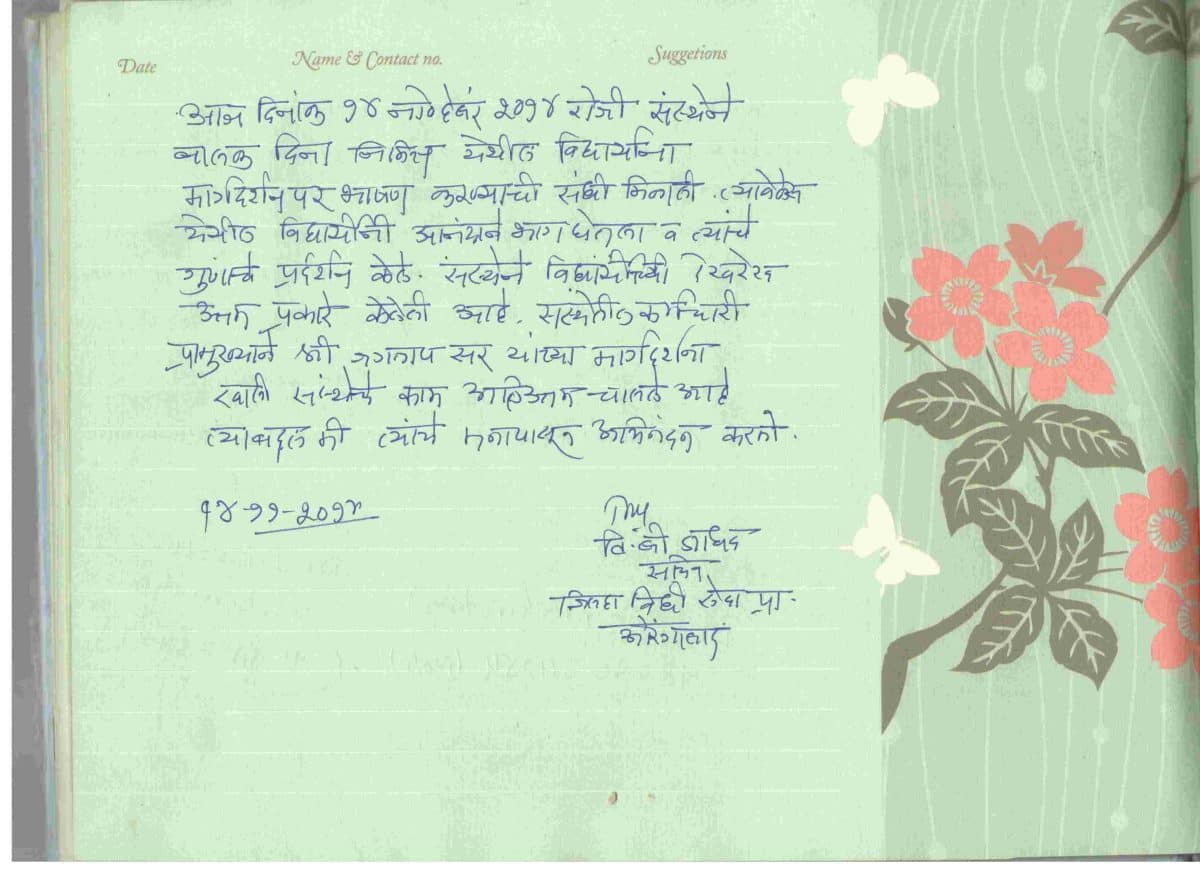 Date Name & Contact no. Suggetions
आज दिनांक १४ नोव्हेंबर २०१४ रोजी संस्थेने
बालक दिना निमित्त येथील विद्यार्थांना
मार्गदर्शन पर भाषण करण्याची संधी मिळाली. त्यावेळेस
येथील विद्यार्थीनी आनंदाने भाग घेतला व त्यांचे
गुणांचे प्रर्दशन केले. संस्थेने विद्यांर्थांची देखरेख
उत्तम प्रकारे केलेली आहे. संस्थेतील कर्मचारी
प्रामुख्याने श्री जगताप सर यांच्या मार्गदर्शना
खाली संस्थेचे काम अतिउत्तम चालले आहे
त्याबद्दल मी त्यांचे मनापासून अभिनंदन करतो.
१४-११-२०१४
सचिव
जिल्हा विधी सेवा प्रा.
औरंगाबाद